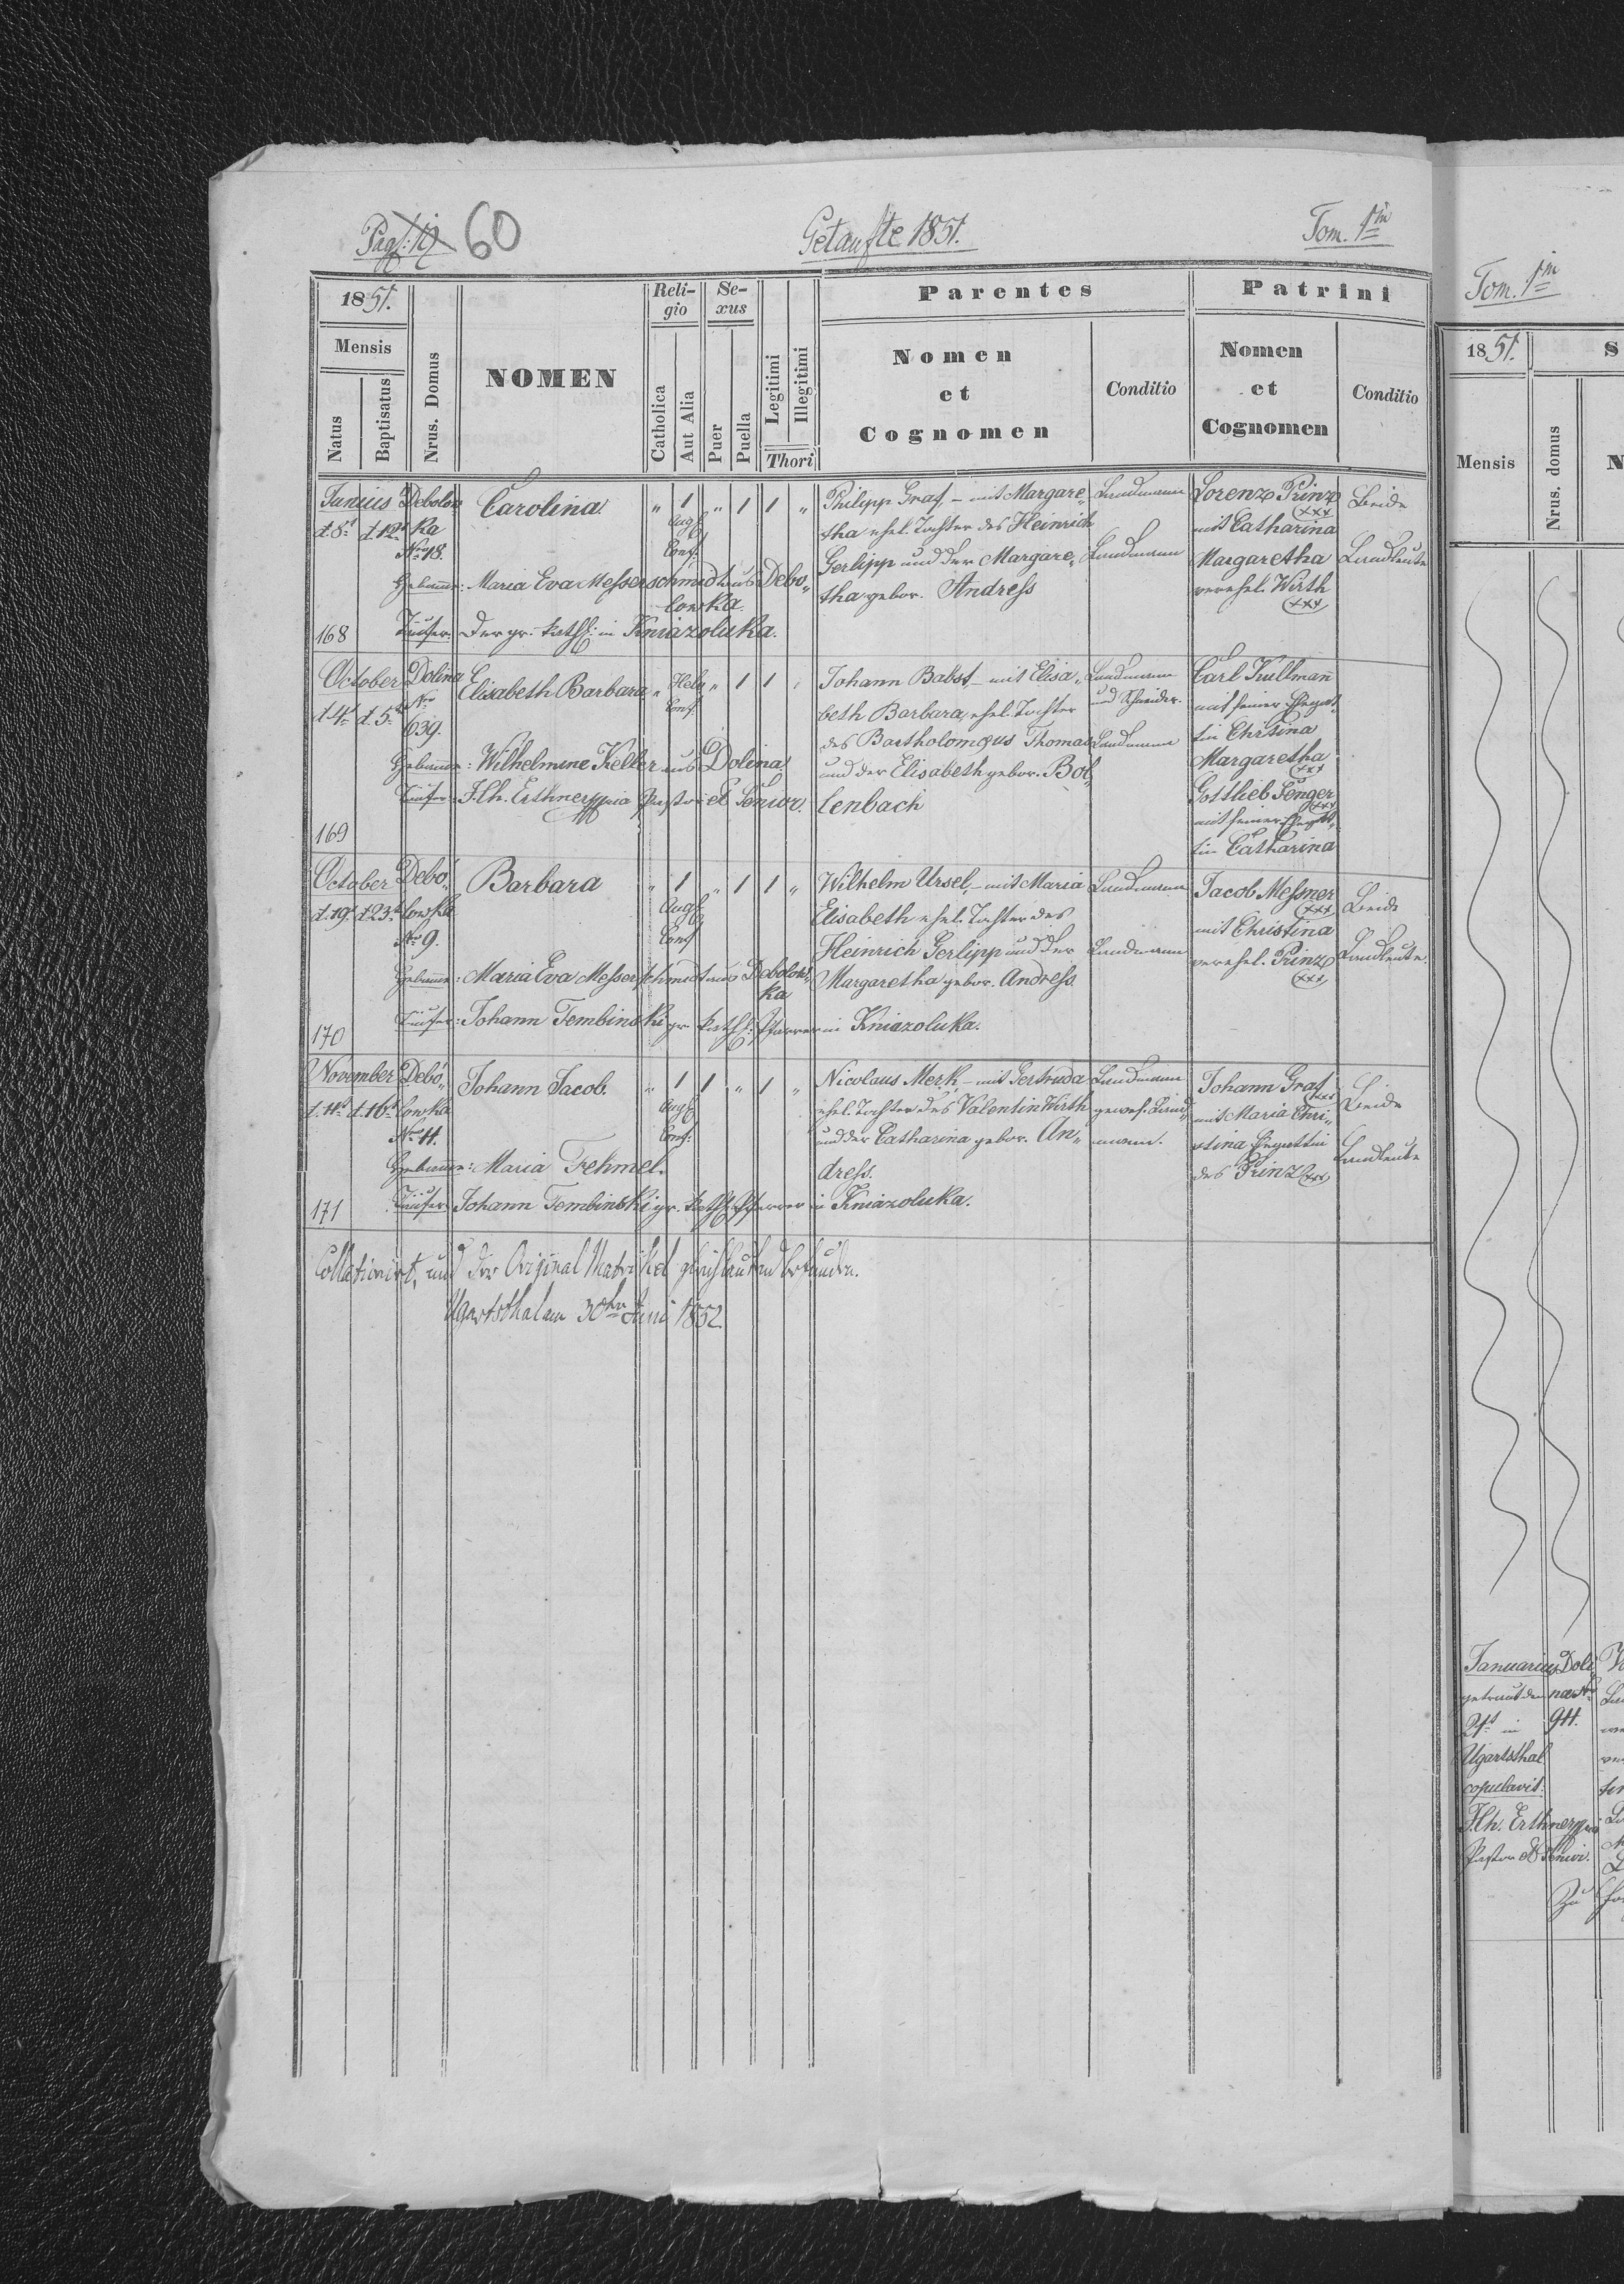 60
Getaufte 1851.
Tom. 1m
1851.
Mensis
Natus
Baptisatus
Nrus. Domus
NOMEN
Reli-
gio
Catholica
Aut Alia
Se-
xus
Puer
Puella
Legitimi
Illegitimi
Thori
Parentes
Nomen
et
Cognomen
Conditio
Patrini
Nomen
et
Cognomen
Conditio
Junius
d. 8t d. 12t
Debolow
ka
No 18.
Carolina
" 1 " 1 1 "
Augs.
Conf.
Philipp Graf, – mit Margare„
tha ehel. Tochter des Heinrich
Gerlipp und der Margare„
tha gebor. Andreß
Landmann
Landmann
Lorenz Prinz
xxx
mit Catharina
Margaretha
verehel. Wirth
xxx
Beide
Landleute
Hebamme: Maria Eva Messerschmidt aus Debo„
lowka.
168
Täufer: Der gr. kath: in Kniazoluka.
October
d. 4t d. 5t
Dolina
No
639.
Elisabeth Barbara
" Helv. " 1 1
Conf.
Johann Babst – mit Elisa„
beth Barbara, ehel. Tochter
des Bartholomeus Thomas
und der Elisabeth gebor. Bol„
lenbach
Landmann
und Schneider.
Landmann
Carl Kullman
mit seiner Ehegat„
tin Christina
Margaretha
xxx
Gottlieb Senger
xxx
mit seiner Ehegat„
tin Catharina
Hebamme: Wilhelmine Keller aus Dolina
Täufer: F. Ch. Erthner Pastor et Senior.
169
October
d. 19t d. 23t
Debo„
lowka
No 9.
Barbara
" 1 " 1 1 "
Augs.
Conf
Wilhelm Ursel, – mit Maria
Elisabeth ehel. Tochter des
Heinrich Gerlipp und der
Margaretha gebor. Andreß.
Landmann
Landmann
Jacob Meßmer
xxx
mit Christina
verehel. Prinz
xxx
Beide
Landleute.
Hebamme: Maria Eva Messerschmidt aus Debolow„
ka
Täufer: Johann Tembinski gr. kath: Pfarrer in Kniazoluka.
170
November
d. 11t d. 16t
Debo„
lowka
No 11.
Johann Jacob.
" 1 1 " 1 "
Augs.
Conf.
Nicolaus Merk, – mit Gertruda
ehel. Tochter des Valentin Wirth
und der Catharina gebor. An„
dreß.
Landmann
gewes. Land„
mann.
Johann Graf
xxx
mit Maria Chri„
stina Ehegattin
des Prinz xxx
Beide
Landleute
Hebamme: Maria Fehmel.
171
Täufer: Johann Tembinski gr. kath: Pfarrer in Kniazoluka.
Collationirt, und der Original Matrikel gleichlautend befunden.
Ugartsthal am 30ten Juni 1852.
Tom. 1m
1851.
Mensis
Nrus. domus
Januarius
getraut den
21t in
Ugartsthal
copulavit:
F. Ch. Erthner
Pastor et Senior.
Doli„
na No
944.